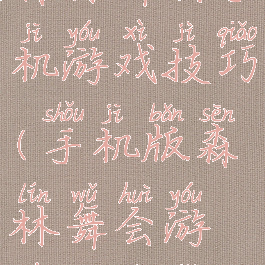 jī yóu xì jì qiǎo
机游戏技巧
shǒu jī bǎn sēn
(手机版森
lín wǔ huì yóu
林舞会游